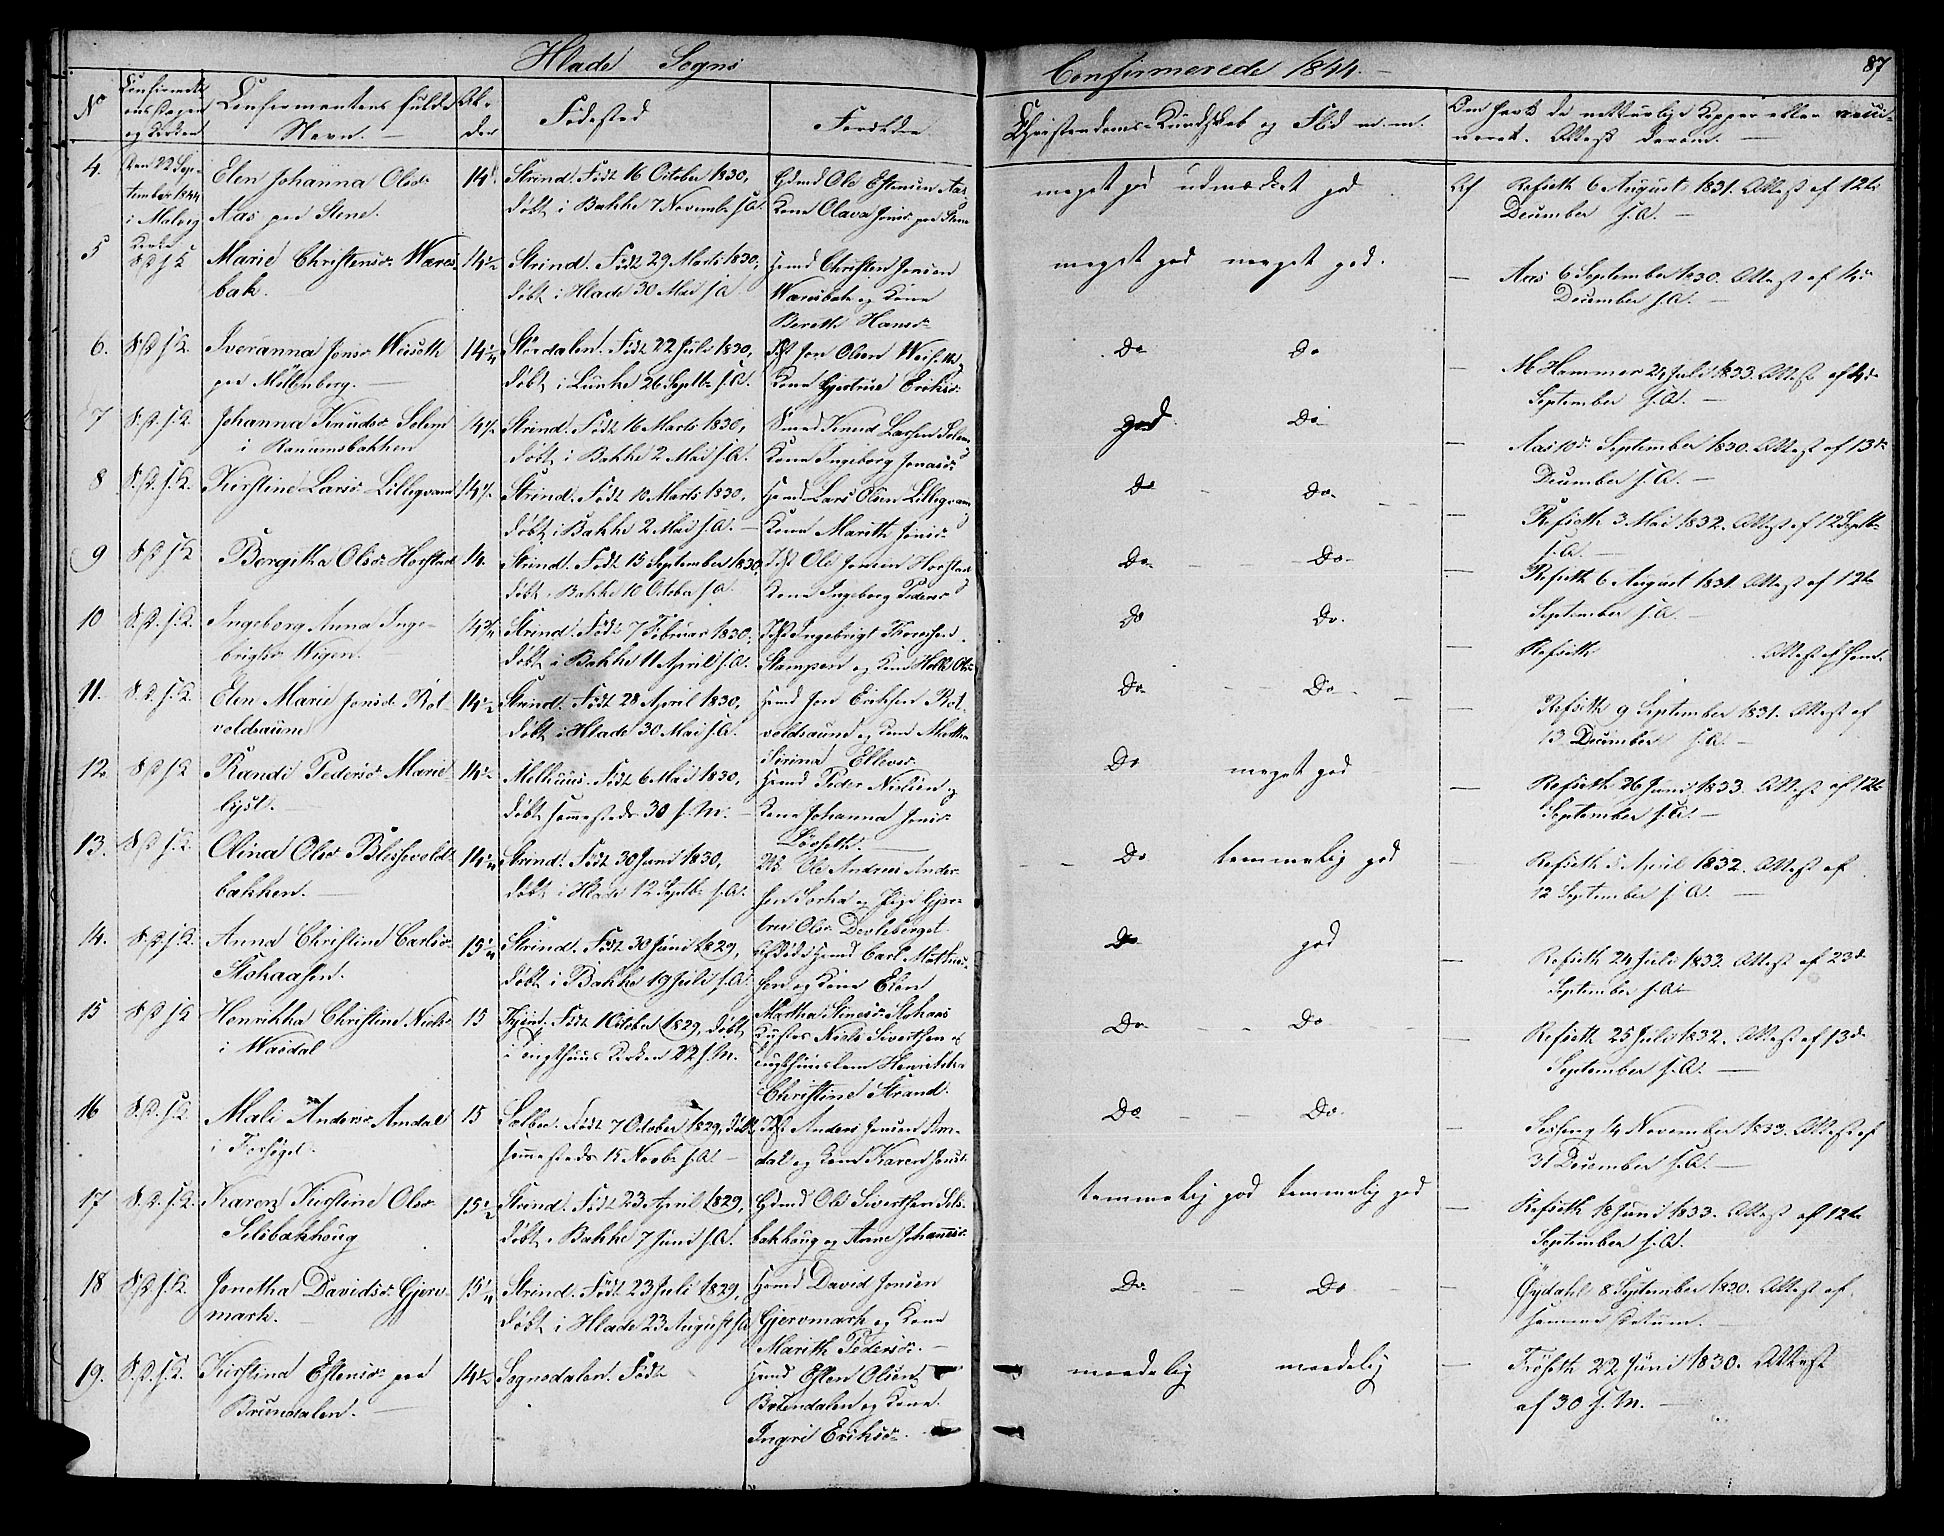 Hlade Sogns
Confirmerede 1844.
87
No
Confirmationsdagen og Kirken
Confirmantens fulde Navn.
Alder
Födested
Forældre
Christendoms-Kundskab og Flid m. m.
Om havt de naturlige Kopper eller vacci-
neret. Attest derom.
4.
Den 22 Sep-
tember 1844
i Malvig
Kirke
Elen Johanna Olsdr
Aas paa Stene.
14
Strind. Födt 16 October 1830,
döbt i Bakke 7 Novembr s. A.
Gdmd Ole Estensen Aas
Kone Olava Jonsdr paa Stene
meget god udmærket god
Af Refseth 6 August 1831. Attest af 12te
December s. A.
5
S. D. s. K.
Marie Christensdr Wæres-
bak.
14 1/2
Strind. Födt 29 Marts 1830,
döbt i Hlade 30 Mai s. A.
Hmd Christen Jensen
Wæresbak og Kone
Bereth Hansdr
meget god meget god.
Aas 6 September 1830. Attest af 14de
December s. A.
6.
S. D. s. K.
Iveranna Jonsdr Weiseth
paa Möllenberg.
14 1/4
Stördalen. Födt 22 Juli 1830,
döbt i Lånke 26 Septbr s. A.
Jon Olsen Weiseth
Kone Gjertrue Eriksdr
Do Do
M Hammer 24 Juli 1833. Attest af 4de
September s. A.
7
S. D. s. K.
Johanna Knudsdr Solem
i Ranumsbakken
14 1/2
Strind. Födt 16 Marts 1830,
döbt i Bakke 2 Mai s. A.
Smed Knud Larsen Solem
Kone Ingeborg Jonasdr
god Do
Aas 10de September 1830. Attest af 13de
December s. A.
8
S. D. s. K.
Kirstine Larsdr Lillegvam
14 1/2
Strind. Födt 10 Marts 1830,
döbt i Bakke 2 Mai s. A.
Hmd Lars Olsen Lillegvam
Kone Marith Jonsdr
Do Do
Refseth 3 Mai 1832. Attest af 12 Septbr
s. A.
9
S. D. s. K.
Bergitha Olsdr Horstad
14.
Strind. Födt 15 September 1830,
döbt i Bakke 10 October s. A.
Ole Jonsen Horstad
Kone Ingeborg Pedersdr
Do Do
Refseth 6 August 1831. Attest af 12te
September s. A.
10
S. D. s. K.
Ingeborg Anna Inge-
brigtsdr Wigen.
14 3/4
Strind. Födt 7 Februar 1830,
döbt i Bakke 11 April s. A.
Ingebrigt
Stampen og Kone Olsdr
Do Do
Refseth Attest af
11.
S. D. s. K.
Elen Marie Jonsdr Rot-
voldsaune
14 1/2
Strind. Födt 28 April 1830,
döbt i Hlade 30 Mai s. A.
Hmd Jon Eriksen Rot-
voldsaune og Kone Martha
Sirina Ellevsdr
Do Do
Refseth 9 September 1831. Attest af
13 December s. A.
12
S. D. s. K.
Randi Pedersdr Marie-
lyst.
14 1/2
Melhuus. Födt 6 Mai 1830,
döbt sammesteds 30 s. M.
Hmd Peder Nielsen og
Kone Johanna Jonsdr
Do meget god
Refseth 26 Juni 1833. Attest af 12te
September s. A.
13.
S. D. s. K.
Olina Olsdr Blegevold-
bakken.
14 1/4
Strind. Födt 30 Juni 1830,
döbt i Hlade 12 Septbr s. A.
Ole Andreas Ander-
sen og Pige Gjer-
trud Olsdr Devleberget
Do temmelig god
Refseth 5 April 1832. Attest af
12 September s. A.
14.
S. D. s. K.
Anna Christine Carlsdr
Stohaasen.
15 1/4
Strind. Födt 30 Juni 1829,
döbt i Bakke 19 Juli s. A.
Afdöde Hmd Carl Mathias-
sen og Kone Elen
Martha Stinesdr Stohaas
Do god
Refseth 24 Juli 1833. Attest af 23de
September s. A.
15
S. D. s. K.
Henrikka Christine Nielsdr
i Wardal
15
Födt 1 October 1829, döbt
i Tugthuus Kirken 22 s. M.
Niels Sivertsen og
Tugthuuslem Henrikka
Christine Strand.
Do Do
Refseth 25 Juli 1832. Attest af 13de
September s. A.
16
S. D. s. K.
Mali Andersdr Amdal
i Forsöget.
15
Selboe. Födt 7 October 1829, döbt
sammesteds 15 Novbr s. A.
Anders Jonsen Am-
dal og Kone Karen Jonsdr
Do Do
4 November 1833. Attest af
31 December s. A.
17
S. D. s. K.
Karen Kirstine Olsdr
Silibakhaug
15 1/2
Strind. Födt 23 April 1829,
döbt i Bakke 7 Juni s. A.
Gdmd Ole Sivertsen Sili-
bakhaug og Anne Johannesdr
temmelig god temmelig god
Refseth 18 Juni 1833. Attest af 12te
September s. A.
18
S. D. s. K.
Jonetha Davidsdr Gjerv-
mark.
15 1/4
Strind. Födt 23 Juli 1829,
döbt i Hlade 23 August s. A.
Hmd David Jonsen
Gjervmark og Kone
Marith Pedersdr.
Do Do
Öydahl 8 September 1830. Attest af
samme Datum.
19.
S. D. s. K.
Kirstina Estensdr paa
Brundalen.
14 1/2
Sognedalen. Födt
Hmd Esten Olsen
Brændalen og Kone
Ingri Eriksdr.
maadelig maadelig
Fröseth 22 Juni 1830. Attest
af 30 s. M.